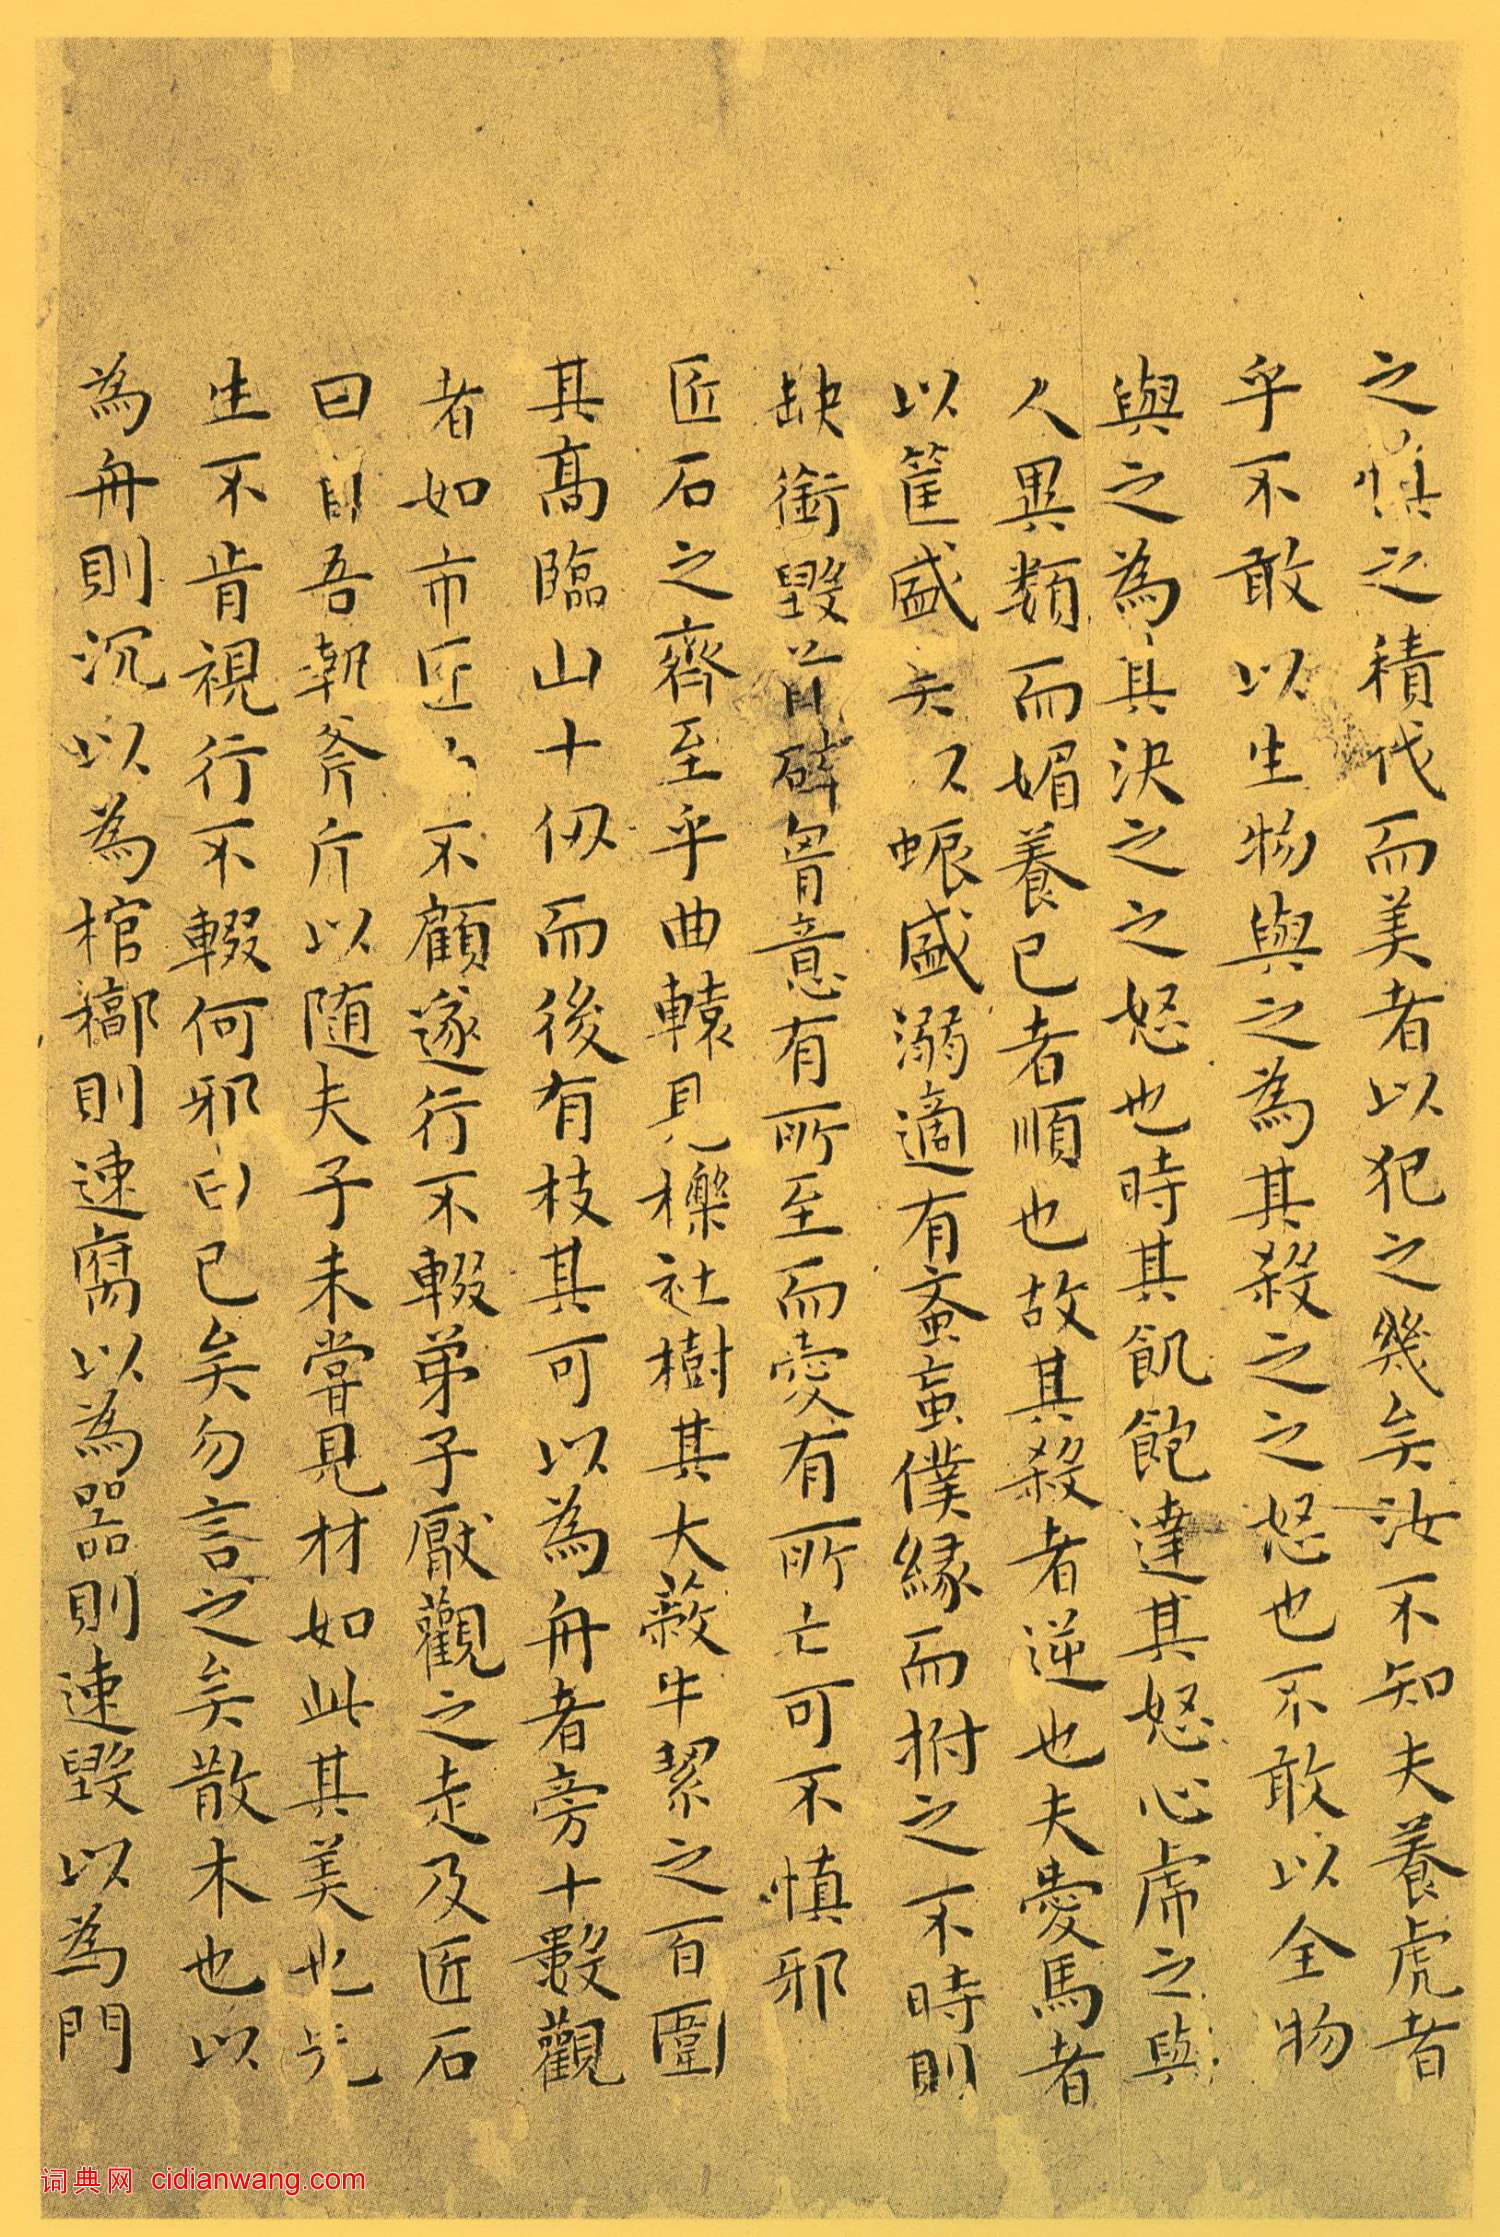 之慎之積伐而美者以犯之幾矣汝不知夫養虎者
乎不敢以生物與之為其殺之之怒也不敢以全物
與之為其決之之怒也時其飢飽達其怒心虎之與
人異類而媚養己者順也故其殺者逆也夫愛馬者
以筐盛矢以蜄盛溺適有蚉䖟僕緣而拊之不時則
缺銜毀首碎胷意有所至而愛有所亡可不慎邪
匠石之齊至乎曲轅見櫟社樹其大蔽牛絜之百圍
其高臨山十仞而後有枝其可以為舟者旁十數觀
者如市匠不顧遂行不輟弟子厭觀之走及匠石
曰自吾執斧斤以随夫子未嘗見材如此其美也先
生不肯視行不輟何邪曰已矣勿言之矣散木也以
為舟則沉以為棺槨則速腐以為器則速毀以為門
词典网 cidianwang.com